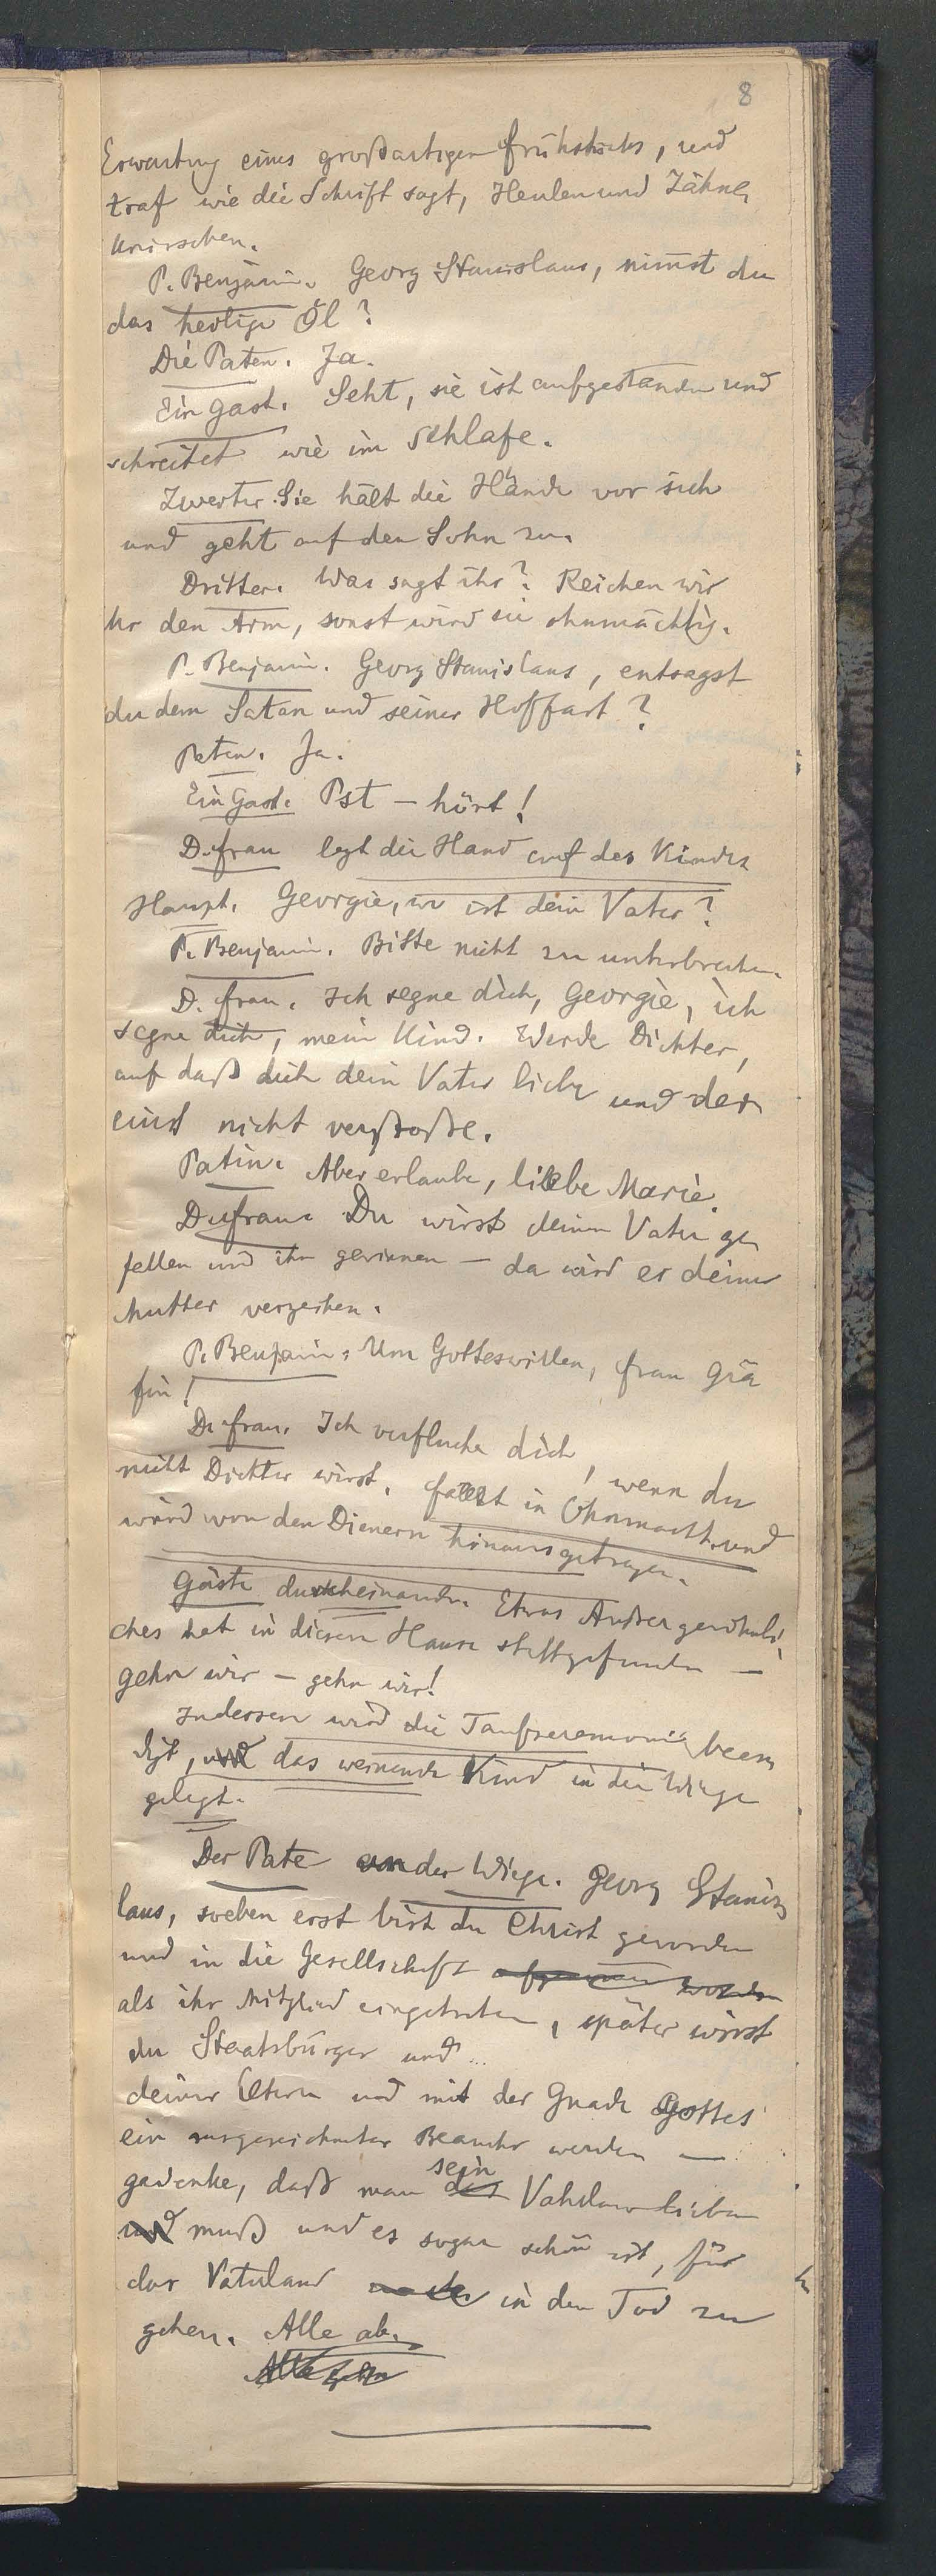 8
Erwartung eines großartigen Frühstücks, und
traf wie die Schrift sagt, Heulen und Zähne
knirschen.
P. Benjamin. Georg Stanislaus, nimmst du
das heilige Öl?
Die Paten. Ja.
Ein Gast. Seht, sie ist aufgestanden und
schreitet wie im Schlafe.
Zweiter. Sie hält die Hände vor sich
und geht auf den Sohn zu.
Dritter. Was sagt ihr? Reichen wir
ihr den Arm, sonst wird sie ohnmächtig.
P. Benjamin. Georg Stanislaus, entsagst
du dem Satan und seiner Hoffart?
Paten. Ja.
Ein Gast. Pst – hört!
D. Frau legt die Hand auf des Kindes
Haupt. Georgie, wo ist dein Vater?
P. Benjamin. Bitte nicht zu unterbrechen.
D. Frau. Ich segne dich, Georgie, ich
segne dich, mein Kind. Werde Dichter,
auf daß dich dein Vater liebe und der
einst nicht verstoße.
Patin. Aber erlaube, liebe Marie.
D. Frau. Du wirst deinem Vater ge
fallen und ihn gewinnen – da wird er deiner
Mutter verzeihen.
P. Benjamin. Um Gotteswillen, Frau Grä
fin!
D. Frau. Ich verfluche dich, wenn du
nicht Dichter wirst. Fällt in Ohnmacht und
wird von den Dienern hinausgetragen.
Gäste durcheinander. Etwas Außergewöhnli
ches hat in diesem Hause stattgefunden –
gehn wir – gehn wir!
Indessen wird die Taufzeremonie been
digt, und das weinende Kind in die Wiege
gelegt.
Der Pate an der Wiege. Georg Stanis
laus, soeben erst bist du Christ geworden
und in die Gesellschaft
als ihr Mitglied eingetreten, später wirst
du Staatsbürger und ...
deiner Eltern und mit der Gnade Gottes
ein ausgezeichneter Beamter werden –
gedenke, daß man sein Vaterland lieben
und muß und es sogar schön ist, für
das Vaterland in den Tod zu
gehen. Alle ab.
Alle gehn